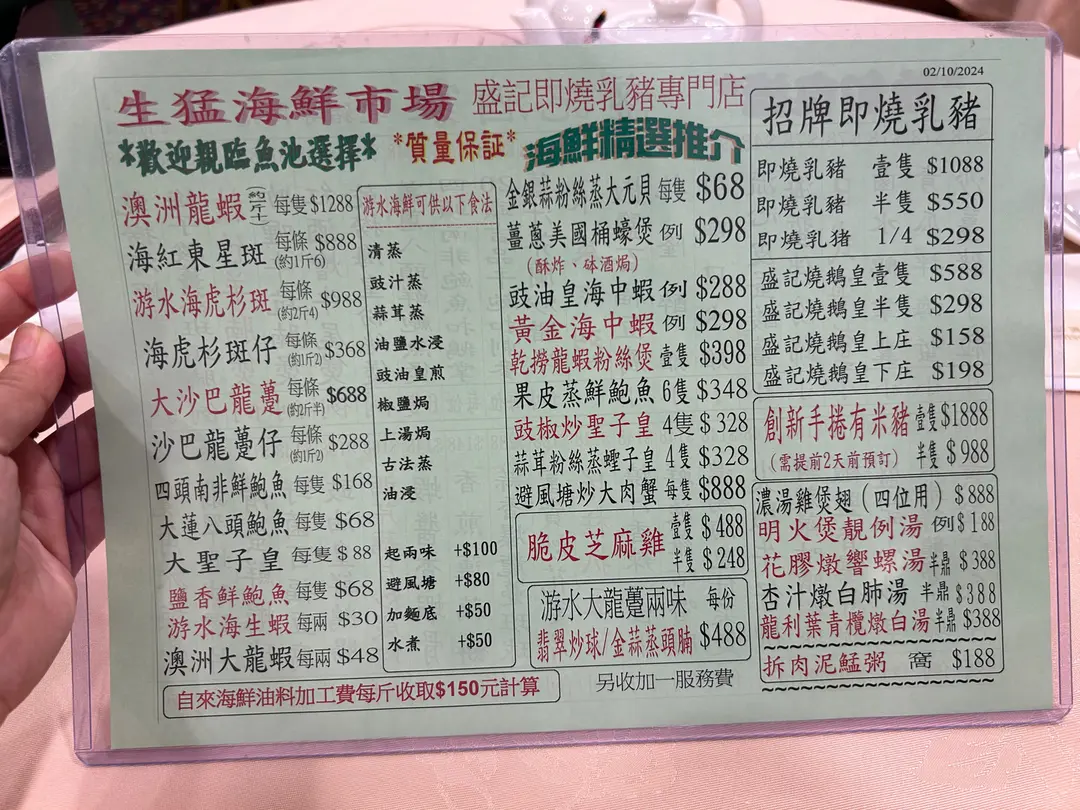 02/10/2024
生猛海鮮市場 盛記即燒乳豬專門店
*歡迎親臨魚池選擇* *質量保証*
澳洲龍蝦 (約一斤) 每隻 $1288
海紅東星斑 每條 (約1斤6) $888
游水海虎杉斑 每條 (約2斤4) $988
海虎杉斑仔 每條 (約1斤2) $368
大沙巴龍躉 每條 (約2斤半) $688
沙巴龍躉仔 每條 (約1斤2) $288
四頭南非鮮鮑魚 每隻 $168
大蓮八頭鮑魚 每隻 $68
大聖子皇 每隻 $88
鹽香鮮鮑魚 每隻 $68
游水海生蝦 每兩 $30
澳洲大龍蝦 每兩 $48
游水海鮮可供以下食法
清蒸
豉汁蒸
蒜茸蒸
油鹽水浸
豉油皇煎
椒鹽焗
上湯焗
古法蒸
油浸
起兩味 +$100
避風塘 +$80
加麵底 +$50
水煮 +$50
自來海鮮油料加工費每斤收取$150元計算
海鮮精選推介
金銀蒜粉絲蒸大元貝 每隻 $68
薑蔥美國桶蠔煲 例 $298
(酥炸、砵酒焗)
豉油皇海中蝦 例 $288
黃金海中蝦 例 $298
乾撈龍蝦粉絲煲 壹隻 $398
果皮蒸鮮鮑魚 6隻 $348
豉椒炒聖子皇 4隻 $328
蒜茸粉絲蒸蟶子皇 4隻 $328
避風塘炒大肉蟹 每隻 $888
脆皮芝麻雞 壹隻 $488
半隻 $248
游水大龍躉兩味 每份
翡翠炒球/金蒜蒸頭腩 $488
另收加一服務費
招牌即燒乳豬
即燒乳豬 壹隻 $1088
即燒乳豬 半隻 $550
即燒乳豬 1/4 $298
盛記燒鵝皇壹隻 $588
盛記燒鵝皇半隻 $298
盛記燒鵝皇上庄 $158
盛記燒鵝皇下庄 $198
創新手捲有米豬 壹隻 $1888
(需提前2天前預訂) 半隻 $988
濃湯雞煲翅（四位用） $888
明火煲靚例湯 例 $188
花膠燉響螺湯 半鼎 $388
杏汁燉白肺湯 半鼎 $388
龍利葉青欖燉白湯 半鼎 $388
拆肉泥鯭粥 窩 $188